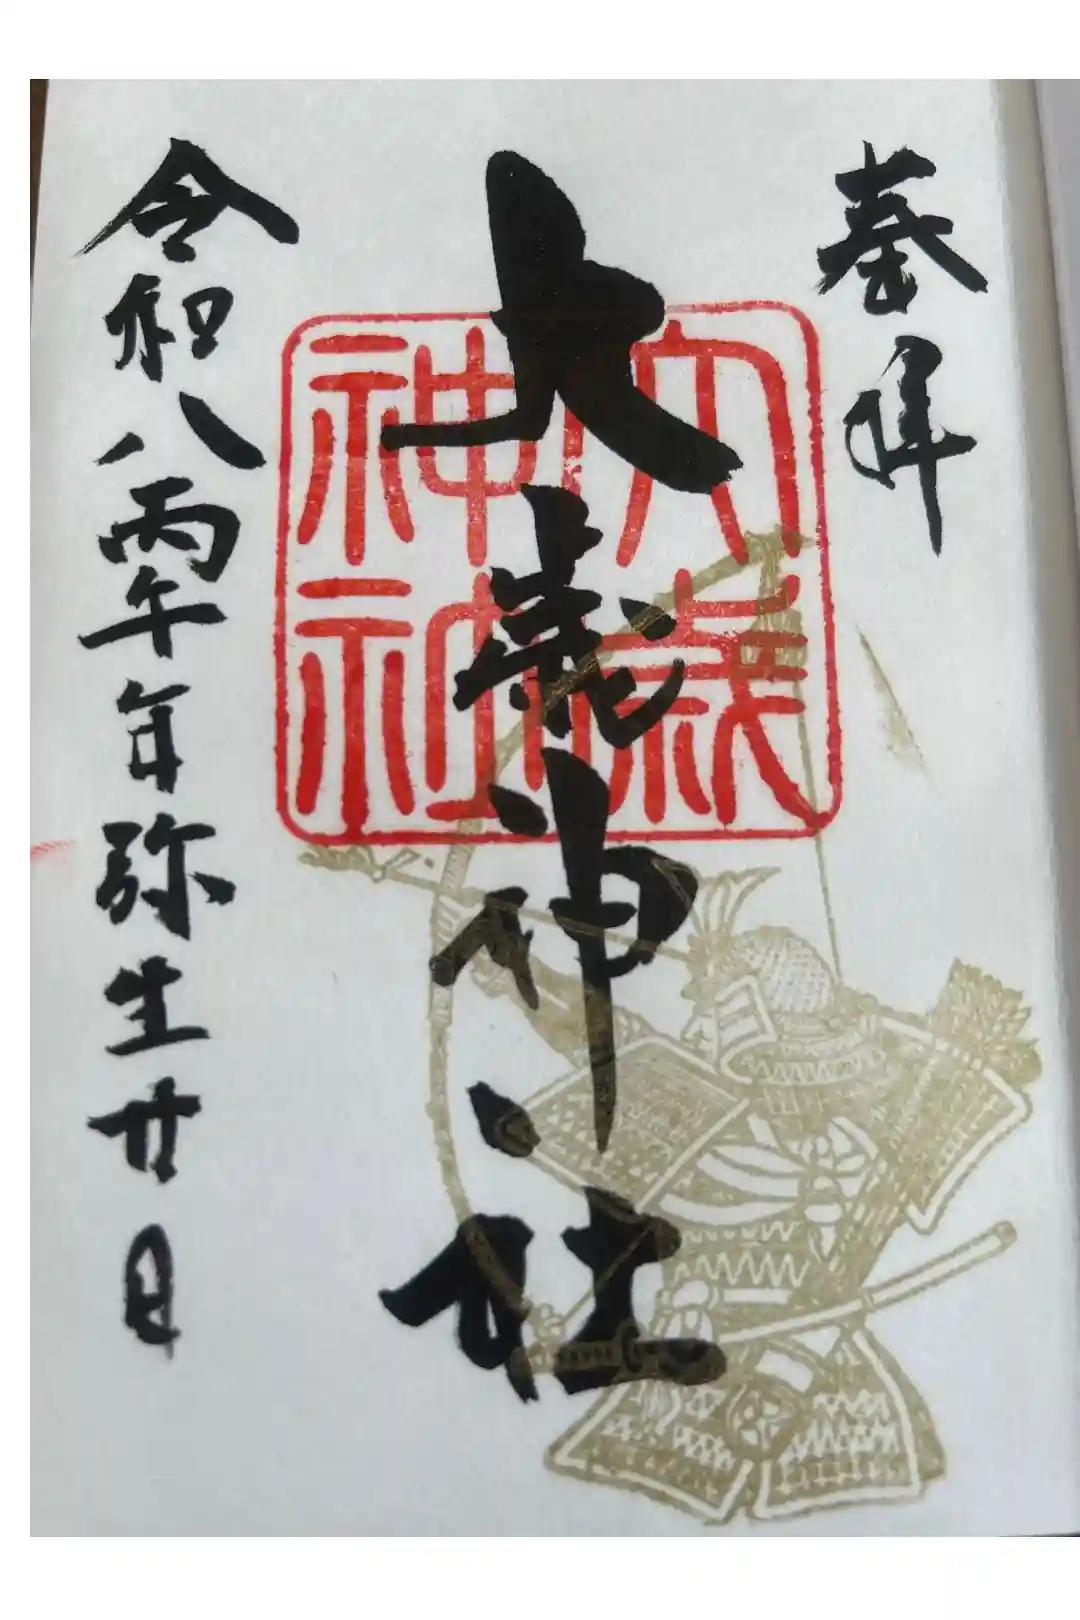 奉拝
大歳神社
大歳神社
令和八丙午年弥生廿日